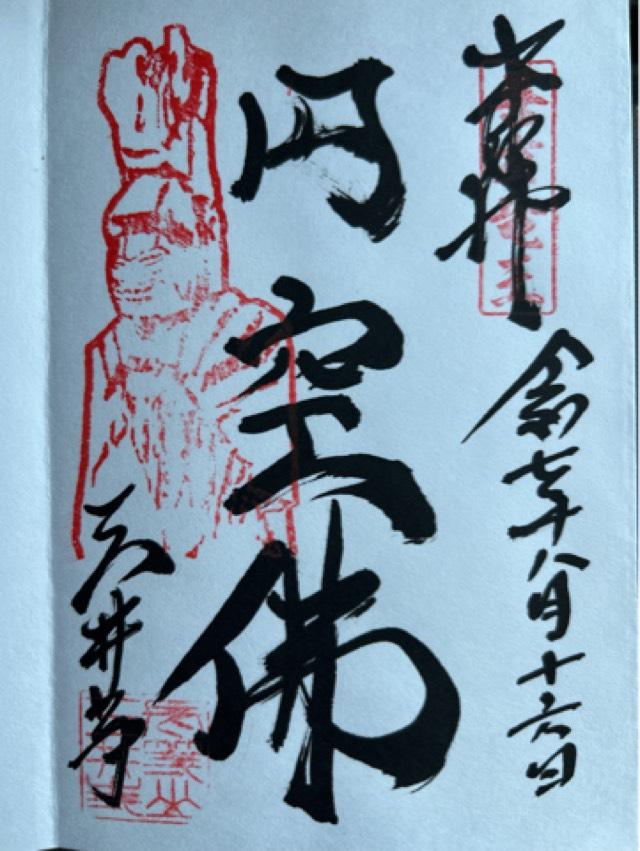 奉拝
令和七年八月十六日
円空佛
三井寺